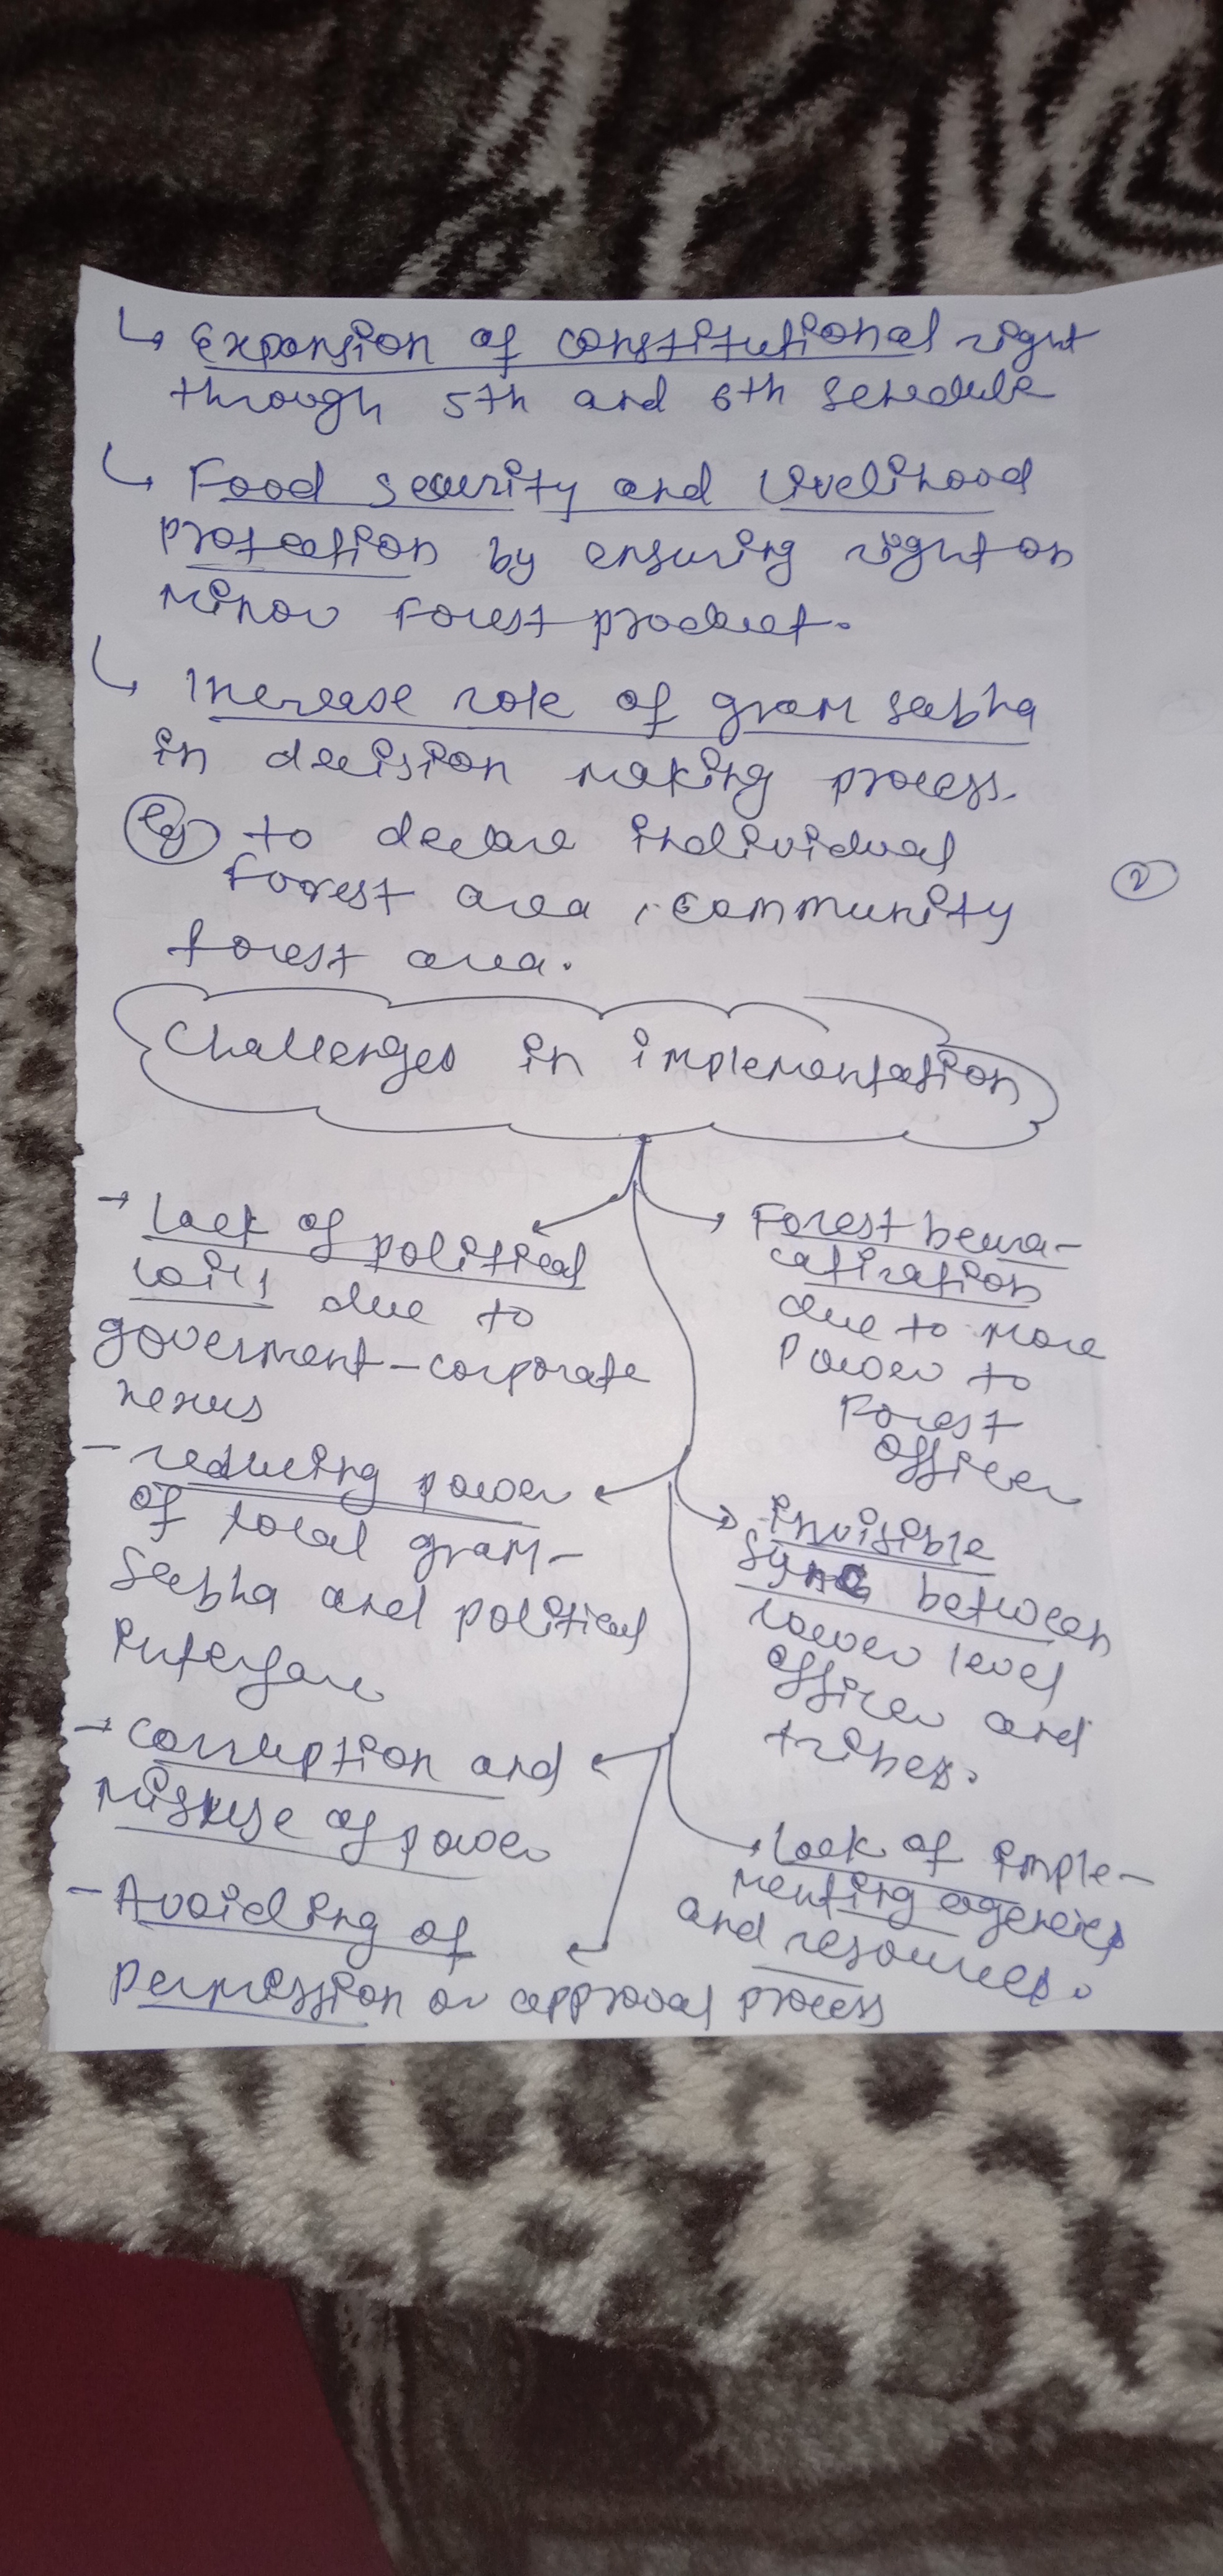 ↳ Expansion of constitutional right
through 5th and 6th schedule
↳ Food security and Livelihood
protection by ensuring right on
minor Forest product.
↳ Increase role of gram sabha
in decision making process.
Eg to declare individual
forest area, community
forest area.
2
Challenges in implementation
→ lack of political
will due to
goverment-corporate
nexus
- reducing power
of local gram-
sabha and political
→ corruption and
misuse of power
- Avoiding of
permission or approval process
Forest beura-
catization
due to more
power to
Forest
officer
invisible
sync between
lower level
officer and
tribes.
Lack of imple-
menting agencies
and resources.